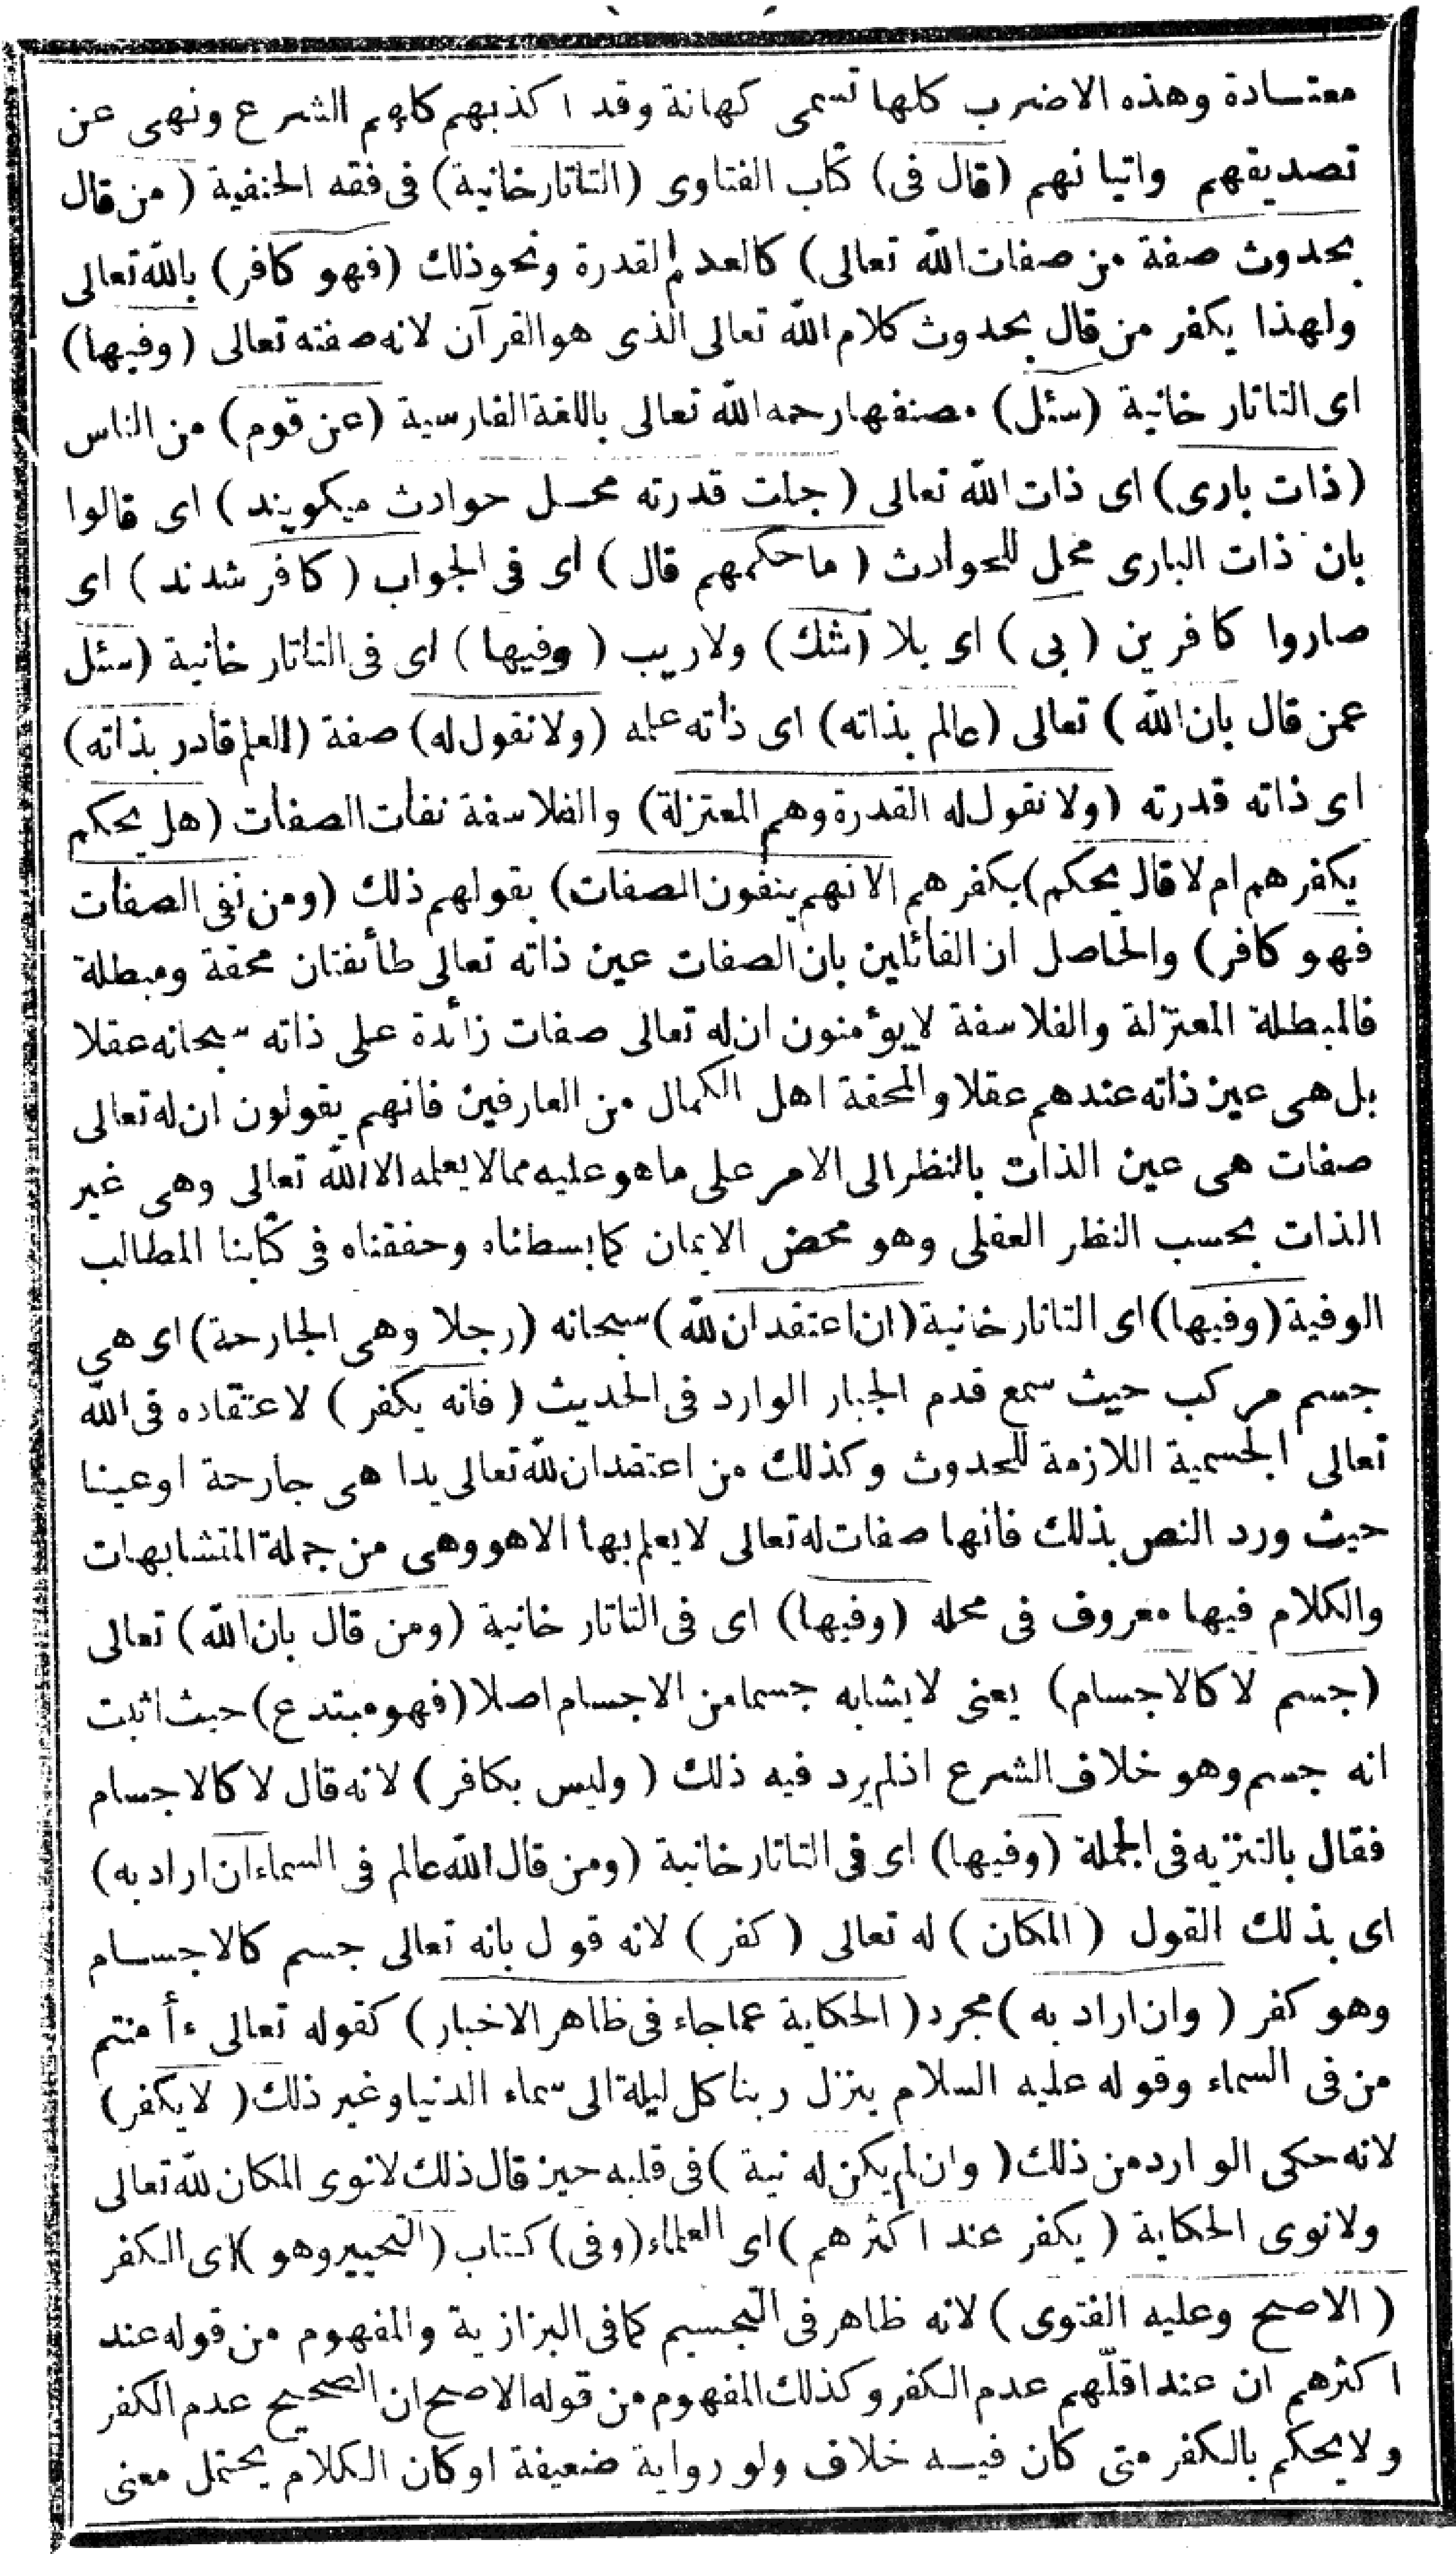 معتادة وهذه الاضرب كلها تسمى كهانة وقد اكذبهم كلهم الشرع ونهى عن
تصديقهم واتيانهم (قال فى) كتاب الفتاوى (التاتارخانية) فى فقه الحنفية (من قال
بحدوث صفة من صفات الله تعالى) كالعدم القدرة ونحو ذلك (فهو كافر) بالله تعالى
ولهذا يكفر من قال بحدوث كلام الله تعالى الذى هو القرآن لانه صفته تعالى (وفيها)
اى التاتار خانية (سئل) مصنفها رحمه الله تعالى باللغة الفارسية (عن قوم) من الناس
(ذات بارى) اى ذات الله تعالى (جلت قدرته محل حوادث ميكويند) اى قالوا
بان ذات البارى محل للحوادث (ما حكمهم قال) اى فى الجواب (كافر شدند) اى
صاروا كافرين (بى) اى بلا (شك) ولاريب (وفيها) اى فى التاتار خانية (سئل
عمن قال بان الله) تعالى (عالم بذاته) اى ذاته علمه (ولا نقول له) صفة (العلم قادر بذاته)
اى ذاته قدرته (ولا نقول له القدرة وهم المعتزلة) والفلاسفة نفات الصفات (هل يحكم
بكفرهم ام لا قال يحكم) بكفرهم (لانهم ينفون الصفات) بقولهم ذلك (ومن نفى الصفات
فهو كافر) والحاصل ان القائلين بان الصفات عين ذاته تعالى طائفتان محقة ومبطلة
فالمبطلة المعتزلة والفلاسفة لايؤمنون ان له تعالى صفات زائدة على ذاته سبحانه عقلا
بل هى عين ذاته عندهم عقلا والمحقة اهل الكمال من العارفين فانهم يقولون ان له تعالى
صفات هى عين الذات بالنظر الى الامر على ماهو عليه ممالا يعلمه الا الله تعالى وهى غير
الذات بحسب النظر العقلى وهو محض الايمان كمابسطناه وحققناه فى كتابنا المطالب
الوفية (وفيها) اى التاتار خانية (ان اعتقد ان لله) سبحانه (رجلا وهى الجارحة) اى هى
جسم مركب حيث سمع قدم الجبار الوارد فى الحديث (فانه يكفر) لاعتقاده فى الله
تعالى الجسمية اللازمة للحدوث وكذلك من اعتقد ان لله تعالى يدا هى جارحة اوعينا
حيث ورد النص بذلك فانها صفات له تعالى لايعلم بها الا هو وهى من جملة المتشابهات
والكلام فيها معروف فى محله (وفيها) اى فى التاتار خانية (ومن قال بان الله) تعالى
(جسم لا كالاجسام) يعنى لايشابه جسما من الاجسام اصلا (فهو مبتدع) حيث اثبت
انه جسم وهو خلاف الشرع اذلم يرد فيه ذلك (وليس بكافر) لانه قال لا كالاجسام
فقال بالتنزيه فى الجملة (وفيها) اى فى التاتار خانية (ومن قال الله عالم فى السماء ان اراد به)
اى بذلك القول (المكان) له تعالى (كفر) لانه قول بانه تعالى جسم كالاجسام
وهو كفر (وان اراد به) مجرد (الحكاية عما جاء فى ظاهر الاخبار) كقوله تعالى ءأمنتم
من فى السماء وقوله عليه السلام ينزل ربنا كل ليلة الى سماء الدنيا وغير ذلك (لايكفر)
لانه حكى الوارد من ذلك (وان لم يكن له نية) فى قلبه حين قال ذلك لانوى المكان لله تعالى
ولانوى الحكاية (يكفر عند اكثرهم) اى العلماء (وفى) كتاب (التحبير وهو) اى الكفر
(الاصح وعليه الفتوى) لانه ظاهر فى التجسيم كمافى البزازية والمفهوم من قوله عند
اكثرهم ان عند اقلهم عدم الكفر وكذلك المفهوم من قوله الاصح ان الصحيح عدم الكفر
ولايحكم بالكفر متى كان فيه خلاف ولو رواية ضعيفة اوكان الكلام يحتمل معنى